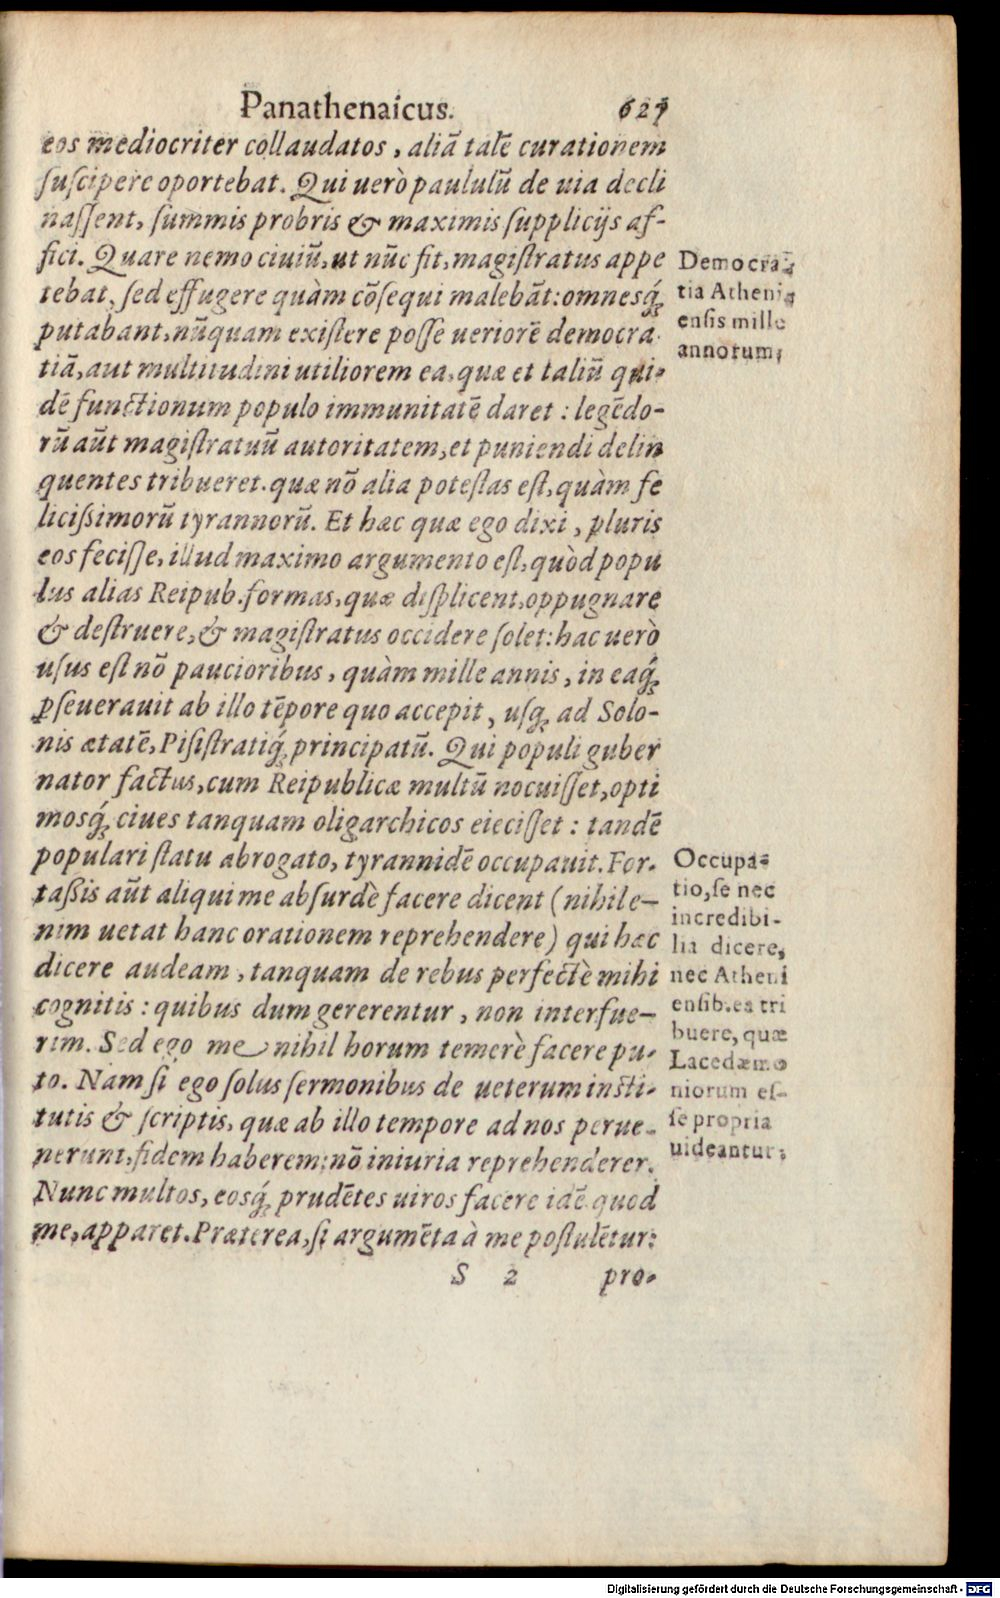 Panathenaicus. 627
eos mediocriter collaudatos, aliā talē curationem
ſuſcipere oportebat. Qui uerò paululū de uia decli
naſſent, ſummis probris & maximis ſupplicijs af-
fici. Quare nemo ciuiū, ut nūc fit, magiſtratus appe
tebat, ſed effugere quàm cōſequi malebāt: omnesq́;
putabant, nūquam exiſtere poſſe ueriorē democra
tiā, aut multitudini utiliorem ea, quæ et taliū qui-
dē functionum populo immunitatē daret: legēdo-
rū aūt magiſtratuū autoritatem, et puniendi delin
quentes tribueret. quæ nō alia poteſtas eſt, quàm fe
licißimorū tyrannorū. Et hæc quæ ego dixi, pluris
eos feciſſe, illud maximo argumento eſt, quòd popu
lus alias Reipub. formas, quæ diſplicent, oppugnare
& deſtruere, & magiſtratus occidere ſolet: hac uerò
uſus eſt nō paucioribus, quàm mille annis, in eaq́;
ꝑſeuerauit ab illo tēpore quo accepit, uſq; ad Solo-
nis ætatē, Piſiſtratiq́; principatū. Qui populi guber
nator factus, cum Reipublicæ multū nocuiſſet, opti
mosq́; ciues tanquam oligarchicos eieciſſet: tandē
populari ſtatu abrogato, tyrannidē occupauit. For-
taßis aūt aliqui me abſurdè facere dicent (nihil e-
nim uetat hanc orationem reprehendere) qui hæc
dicere audeam, tanquam de rebus perfectè mihi
cognitis: quibus dum gererentur, non interfue-
rim. Sed ego me nihil horum temerè facere pu-
to. Nam ſi ego ſolus ſermonibus de ueterum inſti-
tutis & ſcriptis, quæ ab illo tempore ad nos perue-
nerunt, fidem haberem: nō iniuria reprehenderer.
Nunc multos, eosq́; prudētes uiros facere idē quod
me, apparet. Præterea, ſi argumēta à me poſtulētur:
S 2 pro-
Democra-
tia Atheni-
enſis mille
annorum.
Occupa-
tio, ſe nec
incredibi-
lia dicere,
nec Atheni
enſib. ea tri
buere, quæ
Lacedæmo
niorum eſ-
ſe propria
uideantur.
Digitalisierung gefördert durch die Deutsche Forschungsgemeinschaft - DFG